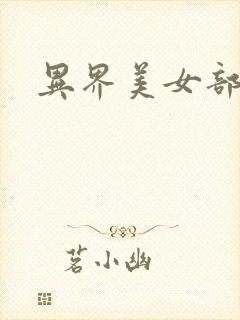 異界美女部
茗小幽